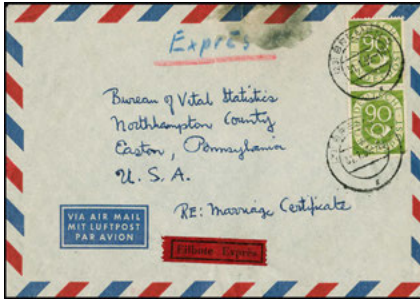 Exprès
90
90
Bureau of Vital Statistics
Northhampton County
Easton, Pennsylvania
U. S. A.
RE: Marriage Certificate
VIA AIR MAIL
MIT LUFTPOST
PAR AVION
Eilbote Exprès